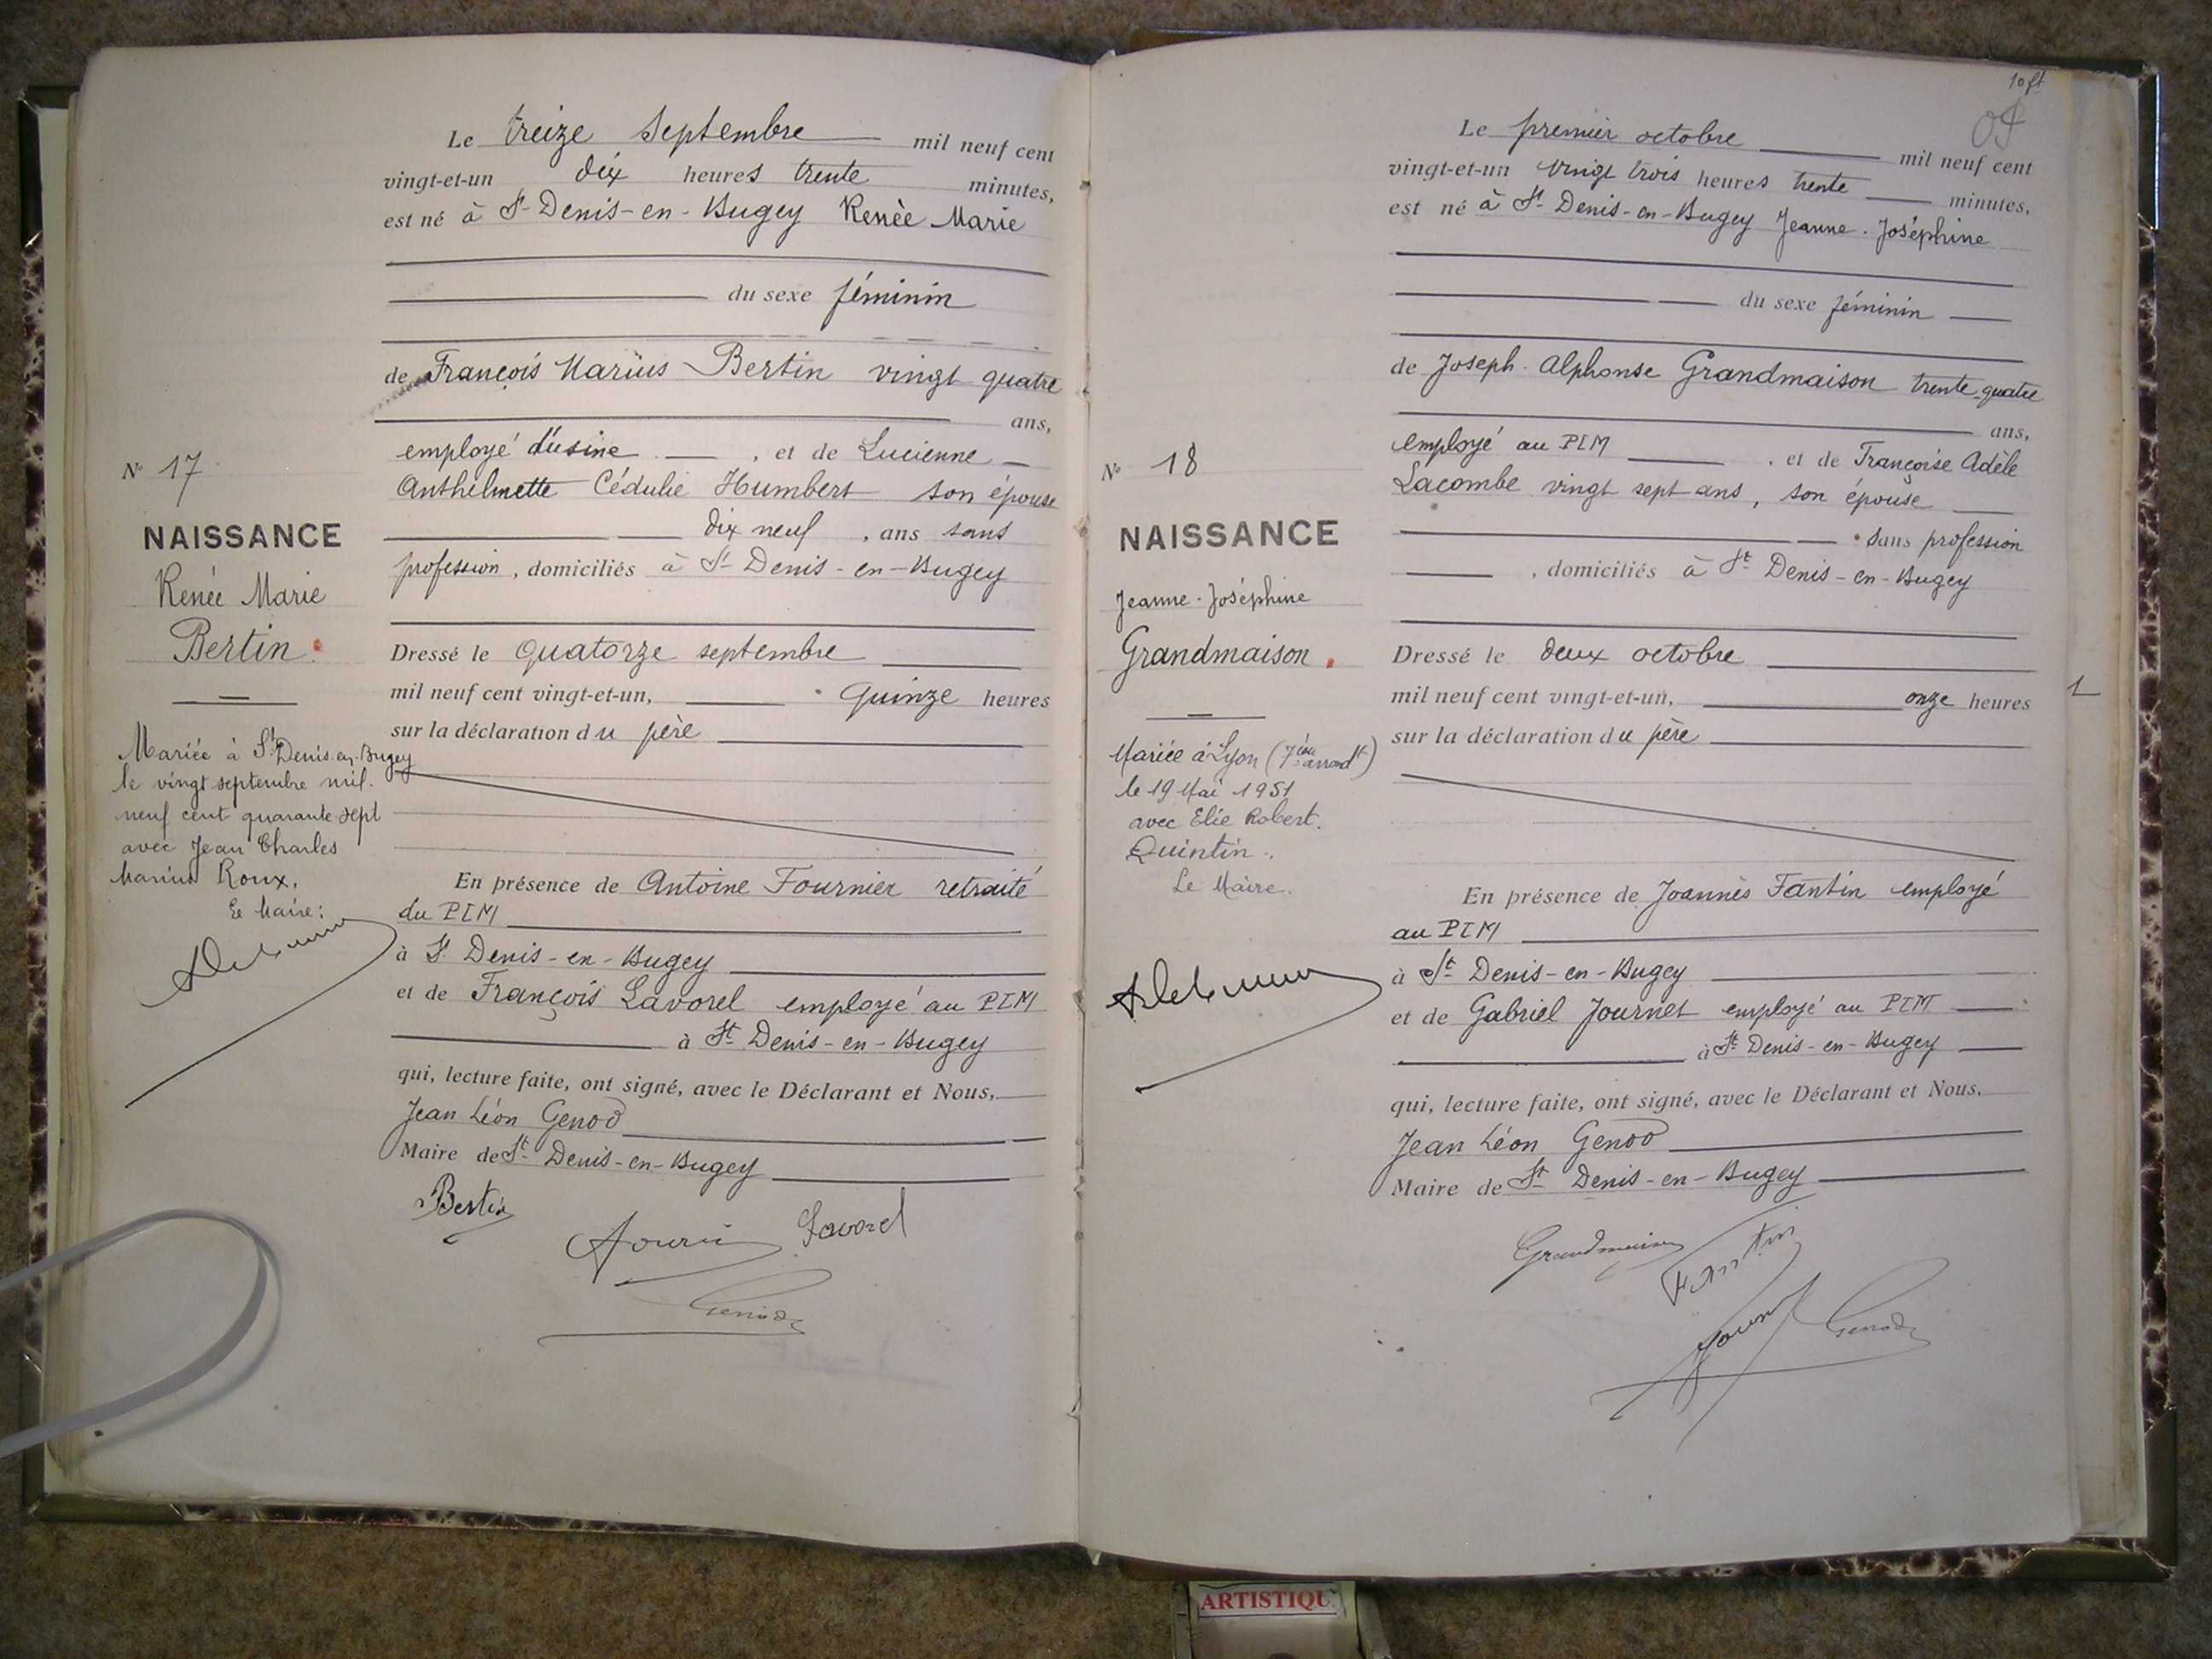 Le treize septembre mil neuf cent
vingt-et-un dix heures trente minutes,
est né à St Denis-en-Bugey Renée Marie
du sexe féminin
de François Marius Bertin vingt quatre
ans,
employé d'usine , et de Lucienne
Anthelmette Cédulie Humbert son épouse
dix neuf , ans sans
profession , domiciliés à St Denis-en-Bugey
Dressé le quatorze septembre
mil neuf cent vingt-et-un, quinze heures
sur la déclaration du père
En présence de Antoine Fournier retraité
du PLM
à St Denis-en-Bugey
et de François Lavorel employé au PLM
à St Denis-en-Bugey
qui, lecture faite, ont signé, avec le Déclarant et Nous,
Jean Léon Genod
Maire de St Denis-en-Bugey
Bertin
Lavorel
Genod
N° 17
NAISSANCE
Renée Marie
Bertin
Mariée à St Denis-en-Bugey
le vingt septembre mil
neuf cent quarante sept
avec Jean Charles
Marius Roux.
Le Maire:
10 ft
Le premier octobre mil neuf cent
vingt-et-un vingt trois heures trente minutes,
est né à St Denis-en-Bugey Jeanne-Joséphine
du sexe féminin
de Joseph Alphonse Grandmaison trente-quatre
ans,
employé au PLM , et de Françoise Adèle
Lacombe vingt sept ans, son épouse
sans profession
, domiciliés à St Denis-en-Bugey
Dressé le deux octobre
mil neuf cent vingt-et-un, onze heures
sur la déclaration du père
En présence de Joannès Fantin employé
au PLM
à St Denis-en-Bugey
et de Gabriel Journet employé au PLM
à St Denis-en-Bugey
qui, lecture faite, ont signé, avec le Déclarant et Nous,
Jean Léon Genod
Maire de St Denis-en-Bugey
Grandmaison
Fantin
Journet
Genod
N° 18
NAISSANCE
Jeanne-Joséphine
Grandmaison
Mariée à Lyon (7ème arrondt)
le 19 Mai 1951
avec Elie Robert
Quintin.
Le Maire.
1
ARTISTIQU